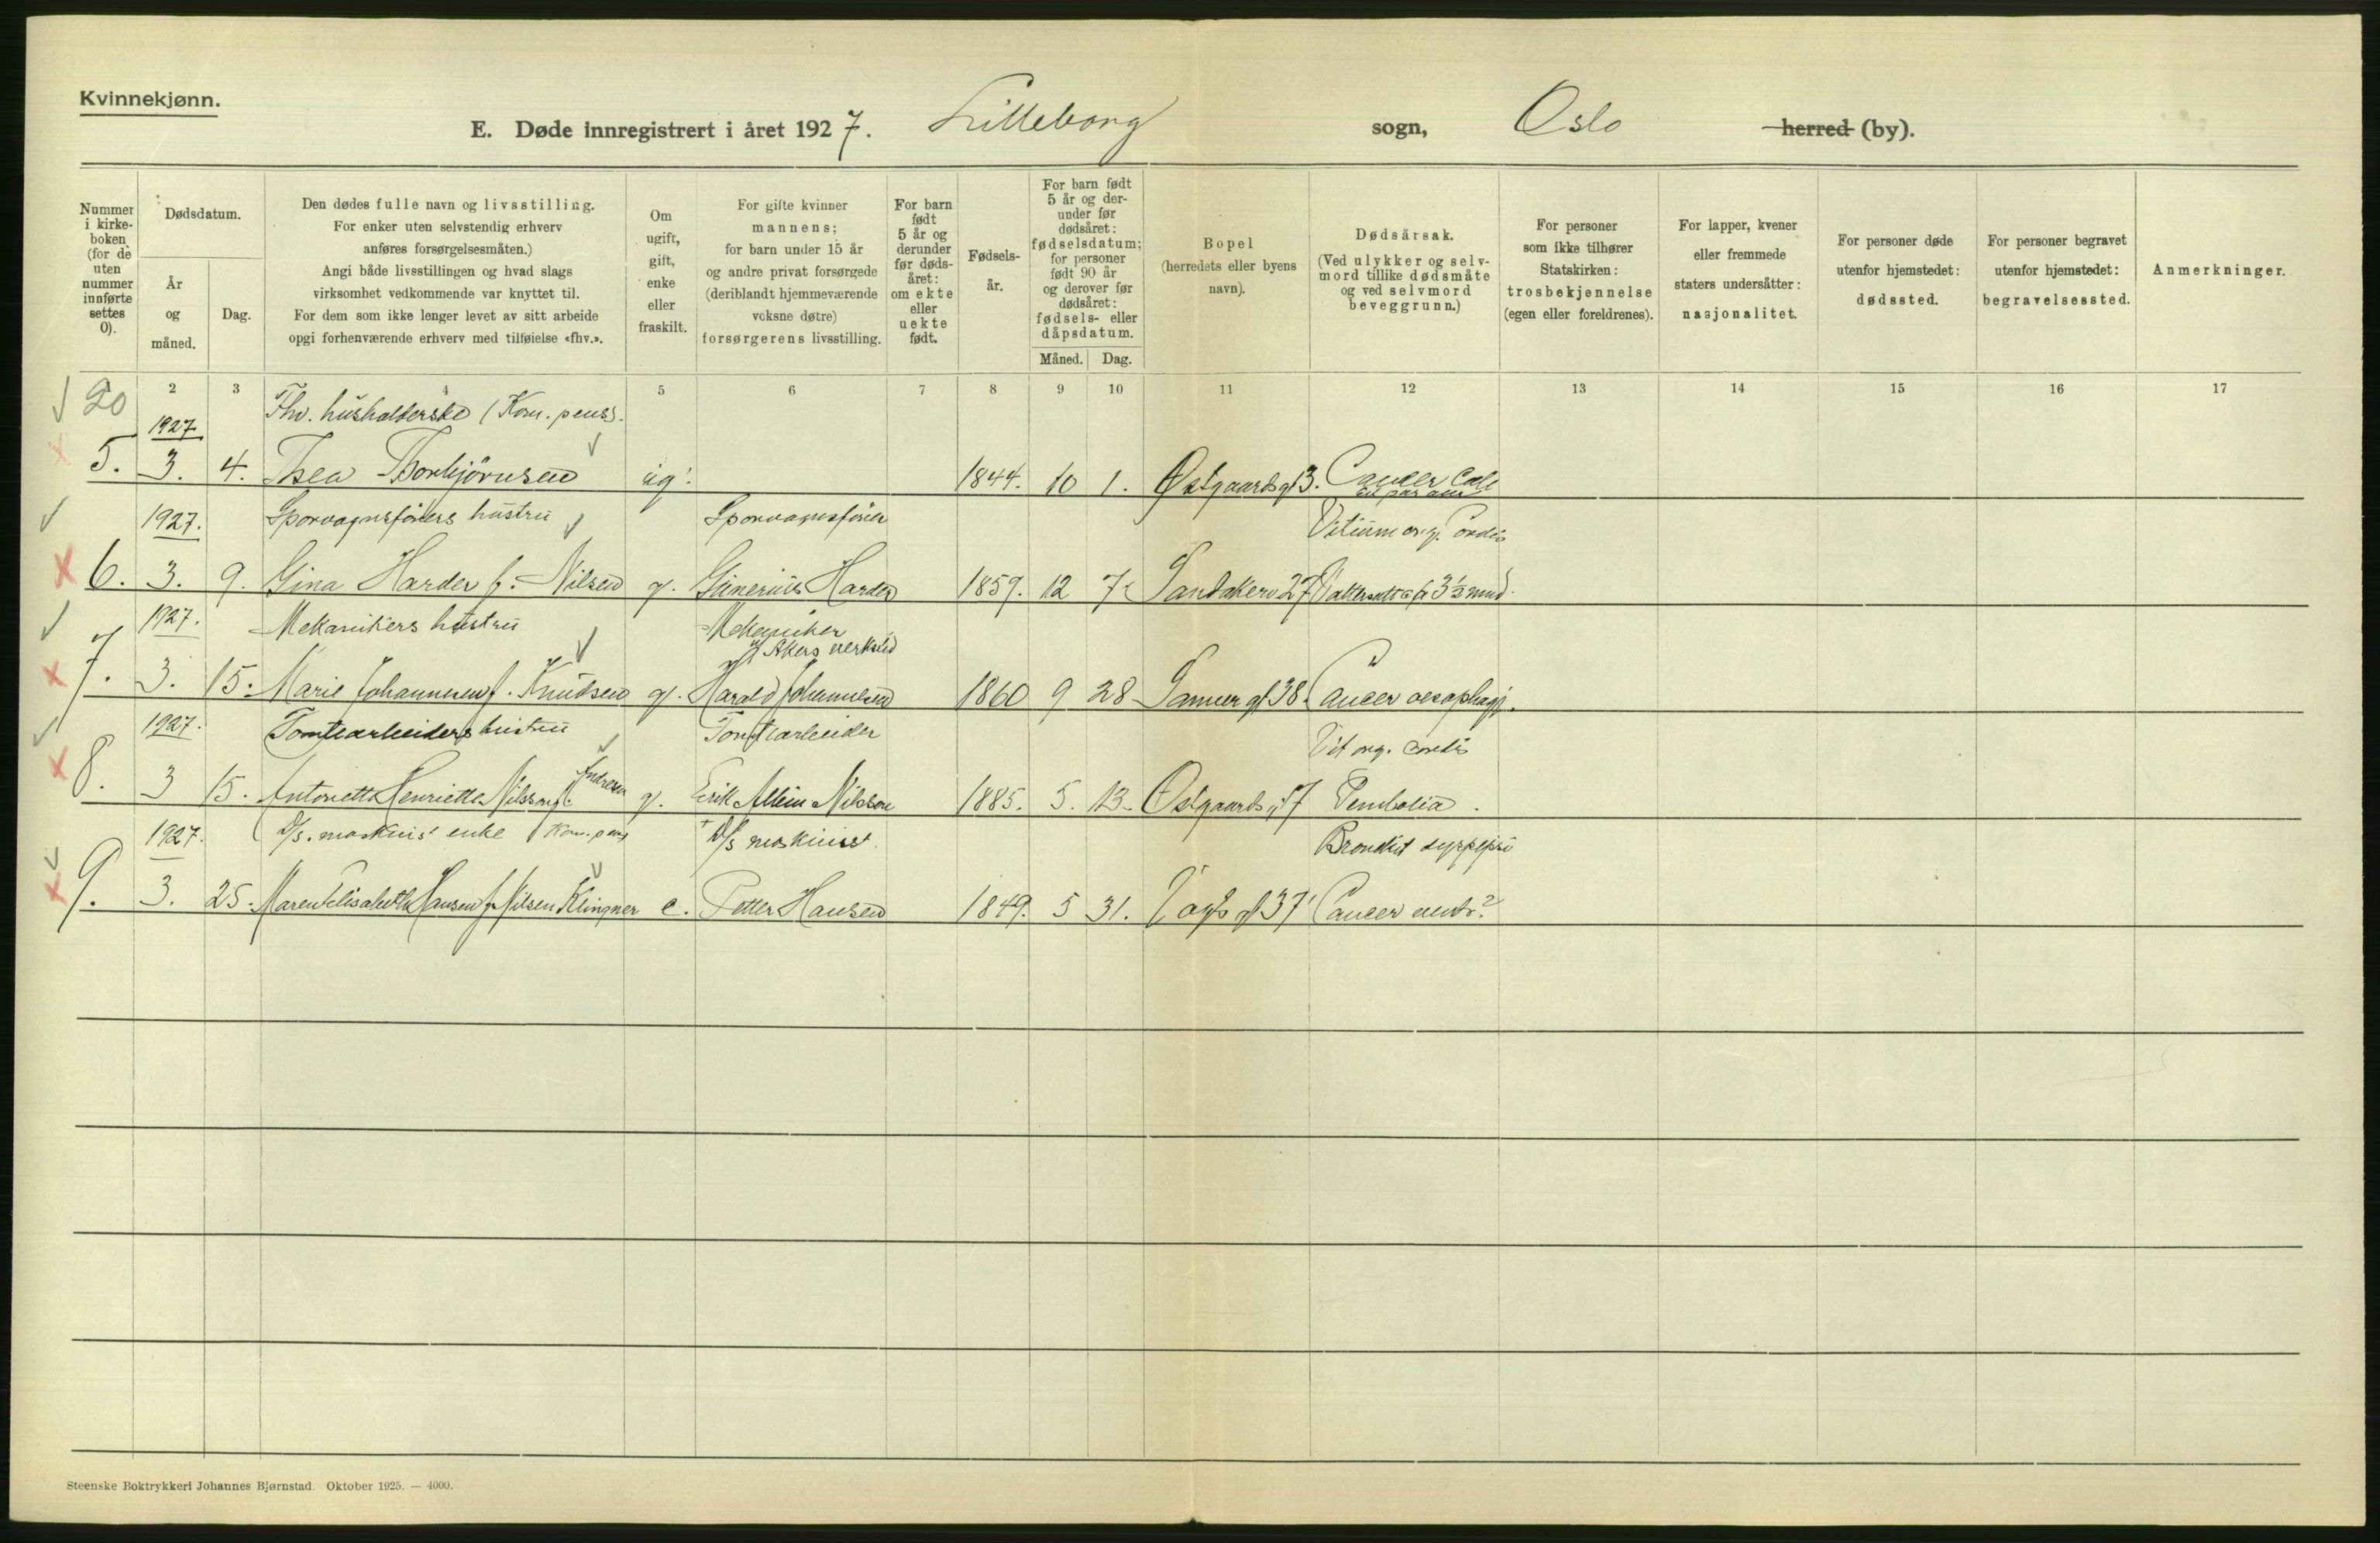 Kvinnekjønn.
E. Døde innregistrert i året 1927. Lilleborg sogn, Oslo herred (by).
Nummer i kirke-boken (for de uten nummer innførte settes 0).
Dødsdatum.
År og måned.
Dag.
Den dødes fulle navn og livsstilling.
For enker uten selvstendig erhverv
anføres forsørgelsesmåten.)
Angi både livsstillingen og hvad slags
virksomhet vedkommende var knyttet til.
For dem som ikke lenger levet av sitt arbeide
opgi forhenværende erhverv med tilføielse «fhv.».
Om ugift, gift, enke eller fraskilt.
For gifte kvinner
mannens;
for barn under 15 år
og andre privat forsørgede
(deriblandt hjemmeværende
voksne døtre)
forsørgerens livsstilling.
For barn født 5 år og derunder før døds-året: om ekte eller uekte født.
Fødsels-år.
For barn født 5 år og der-under før dødsåret: fødselsdatum; for personer født 90 år og derover før dødsåret: fødsels- eller dåpsdatum.
Måned. Dag.
Bopel
(herredets eller byens
navn).
Dødsårsak.
(Ved ulykker og selv-
mord tillike dødsmåte
og ved selvmord
beveggrunn.)
For personer
som ikke tilhører
Statskirken:
trosbekjennelse
(egen eller foreldrenes).
For lapper, kvener
eller fremmede
staters undersåtter:
nasjonalitet.
For personer døde
utenfor hjemstedet:
dødssted.
For personer begravet
utenfor hjemstedet:
begravelsessted.
Anmerkninger.
1 2 3 4 5 6 7 8 9 10 11 12 13 14 15 16 17
20 Fhv. husholderske (Kom. pens).
1927
5. 3. 4. Thea Thorbjörnsen ug. 1844. 10 1. Østgaardsgt 3. Cancer
1927. Sporvognsförers hustru Sporvognsförer Vitium org. Cordis
6. 3. 9. Gina Harder f. Nilsen g. Gunerius Harder 1859. 12 7. Sandakerv 27
1927. Mekanikers hustru Mekaniker
Akers verksted
7. 3. 15. Marie Johannesen f. Knudsen g. Harald Johannesen 1860 9 28 Sanner gt 38. Cancer oesophagi.
1927. Tomtearbeiders hustru Tomtearbeider Vit org. cordis
8. 3 15. Antonette Henriette Nilsson f. Andresen g. Erik Nilsson 1885. 5. 13. Østgaards gt 7 Embolia.
1927. D/s. maskinist enke Kom. pens D/s maskinist Bronchit
9. 3. 25. Maren Elisabeth Hansen f. Nilsen Klingner e. Petter Hansen 1849. 5 31. Vogts gt 37 Cancer ventr?
Steenske Boktrykkeri Johannes Bjørnstad. Oktober 1925. — 4000.